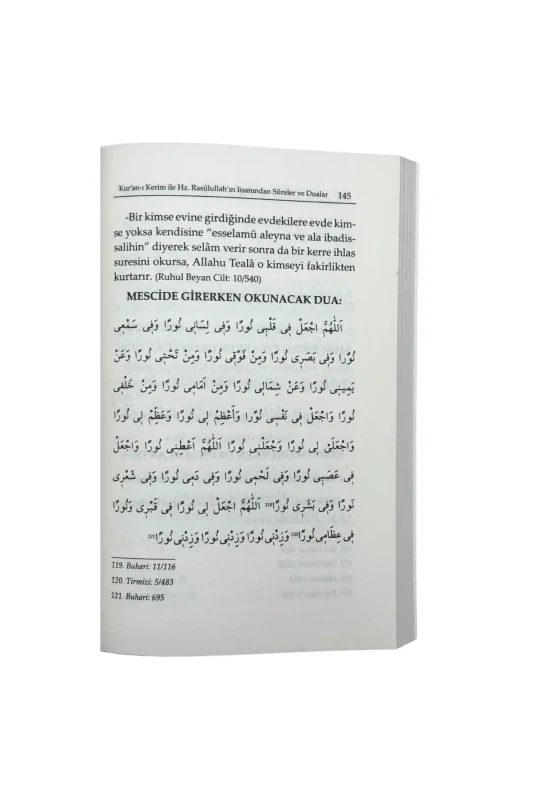 Kur'an-ı Kerim ile Hz. Rasûlullah'ın lisanından Sûreler ve Dualar 145
-Bir kimse evine girdiğinde evdekilere evde kim-
se yoksa kendisine "esselamü aleyna ve ala ibadis-
salihin" diyerek selâm verir sonra da bir kerre ihlas
suresini okursa, Allahu Tealâ o kimseyi fakirlikten
kurtarır. (Ruhul Beyan Cilt: 10/540)
MESCİDE GİRERKEN OKUNACAK DUA:
اَللّٰهُمَّ اجْعَلْ فِي قَلْبِي نُورًا وَفِي لِسَانِي نُورًا وَفِي سَمْعِي
نُورًا وَفِي بَصَرِي نُورًا وَمِنْ فَوْقِي نُورًا وَمِنْ تَحْتِي نُورًا وَعَنْ
يَمِينِي نُورًا وَعَنْ شِمَالِي نُورًا وَمِنْ اَمَامِي نُورًا وَمِنْ خَلْفِي
نُورًا وَاجْعَلْ فِي نَفْسِي نُورًا وَأَعْظِمْ لِي نُورًا وَعَظِّمْ لِي نُورًا
وَاجْعَلْ لِي نُورًا وَجْعَلْنِي نُورًا اَللّٰهُمَّ اَعْطِنِي نُورًا وَاجْعَلْ
فِي عَصَبِي نُورًا وَفِي لَحْمِي نُورًا وَفِي دَمِي نُورًا وَفِي شَعْرِي
نُورًا وَفِي بَشَرِي نُورًا¹¹⁹ اَللّٰهُمَّ اجْعَلْ لِي نُورًا فِي قَبْرِي وَنُورًا
فِي عِظَامِي نُورًا¹²⁰ وَزِدْنِي نُورًا وَزِدْنِي نُورًا وَزِدْنِي نُورًا¹²¹
119. Buhari: 11/116
120. Tirmizi: 5/483
121. Buhari: 695